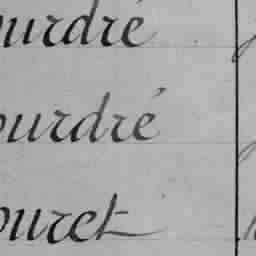 ourdré
ourdré
ouret